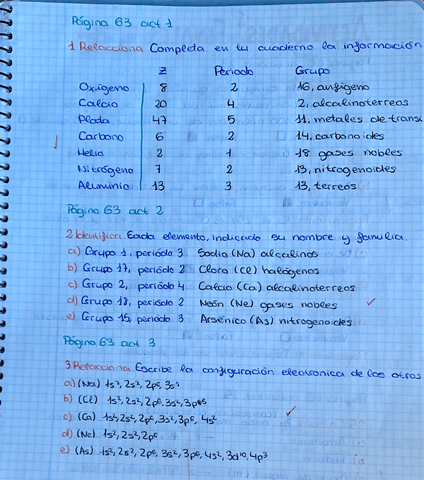 Página 63 act 1
1 Relacciona Completa en tu cuaderno la información
Z Periodo Grupo
Oxígeno 8 2 16, anfígeno
Calcio 20 4 2, alcalinoterreos
Plata 47 5 11, metales de transi
Carbono 6 2 14, carbonoides
Helio 2 1 18 gases nobles
Nitrógeno 7 2 13, nitrogenoides
Aluminio 13 3 13, terreos
Página 63 act 2
2 Identifica Cada elemento, indicado su nombre y familia.
a) Grupo 1, periódo 3 Sodio (Na) alcalinos
b) Grupo 17, periódo 2 Cloro (Cl) halógenos
c) Grupo 2, periódo 4 Calcio (Ca) alcalinoterreos
d) Grupo 18, periodo 2 Neón (Ne) gases nobles
e) Grupo 15, periódo 3 Arsénico (As) nitrogenoides
Página 63 act 3
3 Relacciona Escribe la configuración electronica de los atros
a) (Na) 1s², 2s², 2p⁶, 3s¹
b) (Cl) 1s², 2s², 2p⁶, 3s², 3p⁵
c) (Ca) 1s², 2s², 2p⁶, 3s², 3p⁶, 4s²
d) (Ne) 1s², 2s², 2p⁶
e) (As) 1s², 2s², 2p⁶, 3s², 3p⁶, 4s², 3d¹⁰, 4p³